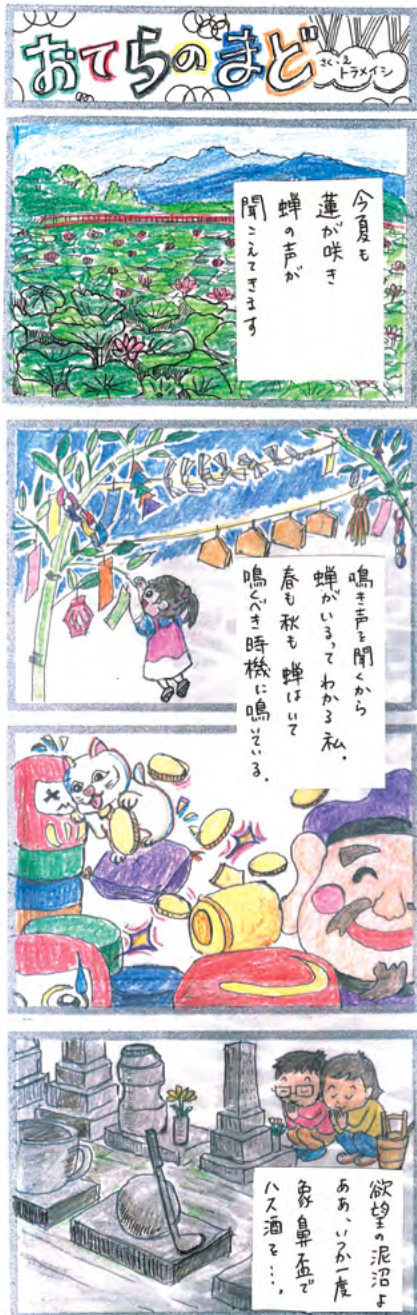 おてらのまど
さく・え
トラメイシ
今夏も
蓮が咲き
蝉の声が
聞こえてきます
鳴き声を聞くから
蝉がいるってわかる私。
春も秋も蝉はいて
鳴くべき時機に鳴いている。
欲望の泥沼よ
ああ、いつか一度
象鼻盃で
ハス酒を…。